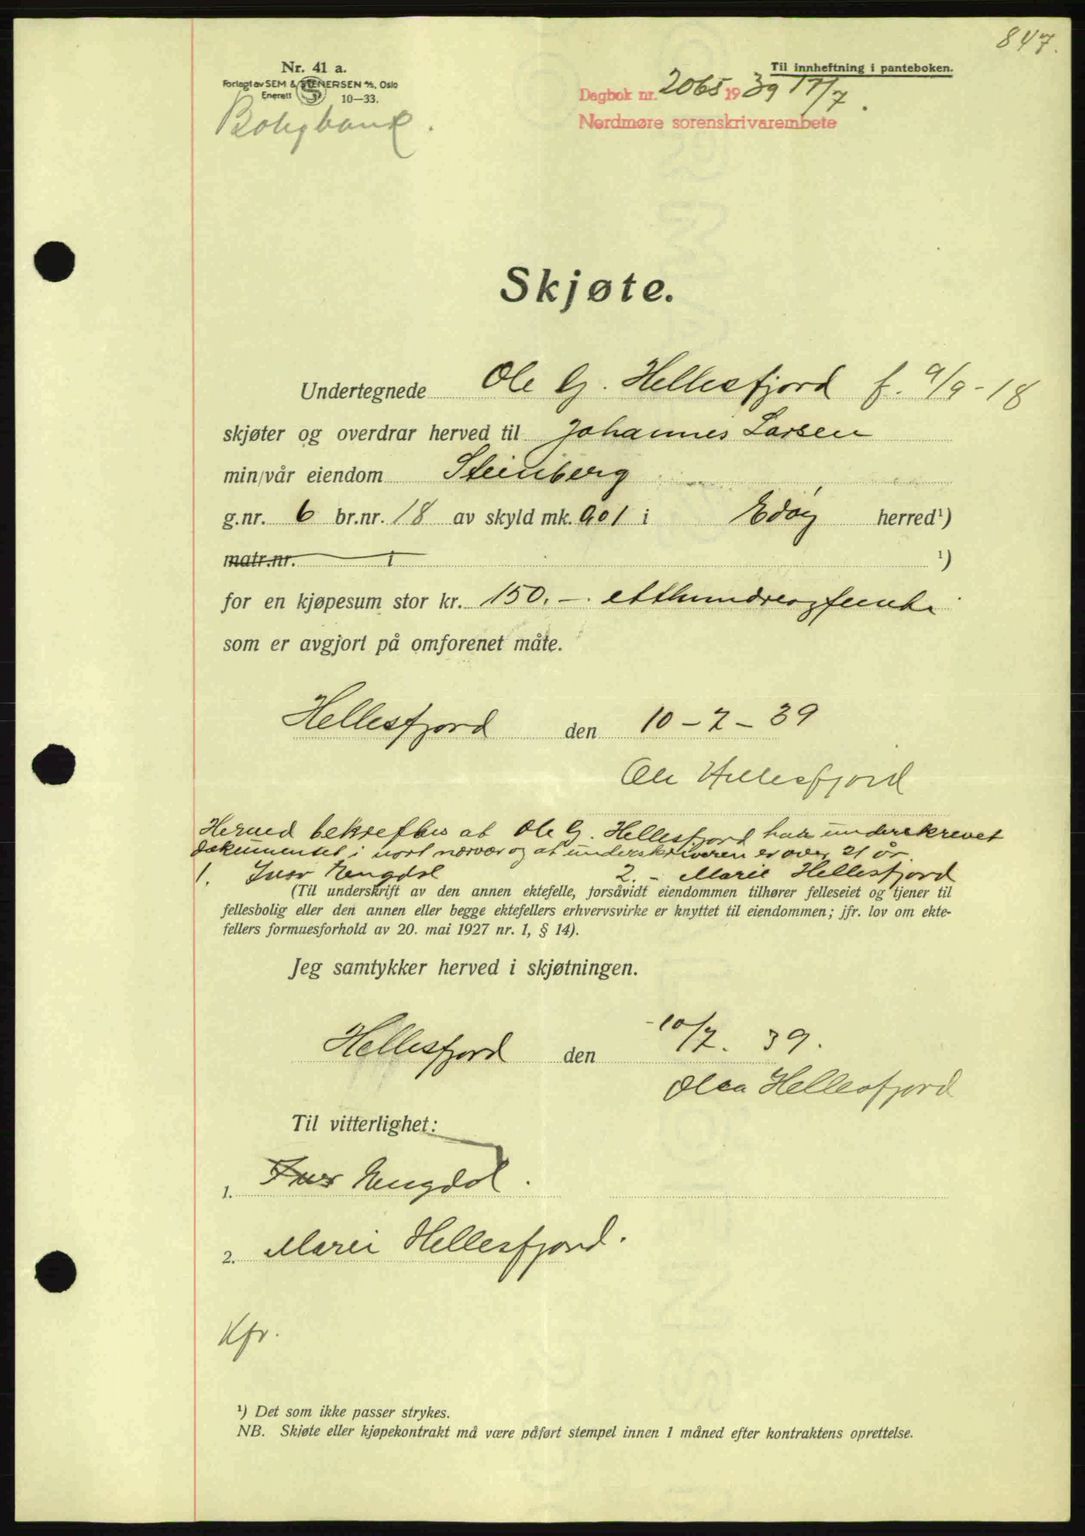 847.
Nr. 41 a.
Forlagt av SEM & STENERSEN A/S, Oslo
Enerett 10—33.
Til innheftning i panteboken.
Dagbok nr. 2065 1939 17/7.
Nordmøre sorenskrivarembete
Skjøte.
Undertegnede Ole G. Hellesfjord f. 9/9-18
skjøter og overdrar herved til Johannes Larsen
min/vår eiendom Steinberg
g.nr. 6 br.nr. 18 av skyld mk. 0.01 i Edøy herred¹)
matr.nr. i ¹)
for en kjøpesum stor kr. 150.- etthundreogfemti
som er avgjort på omforenet måte.
Hellesfjord den 10-7-39
Ole Hellesfjord
Herved bekreftes at Ole G. Hellesfjord har underskrevet
dokumentet i vort nærvær og at underskriveren er over 21 år.
1. Ivar Engdal 2. - Marie Hellesfjord
(Til underskrift av den annen ektefelle, forsåvidt eiendommen tilhører felleseiet og tjener til
fellesbolig eller den annen eller begge ektefellers erhvervsvirke er knyttet til eiendommen; jfr. lov om ekte-
fellers formuesforhold av 20. mai 1927 nr. 1, § 14).
Jeg samtykker herved i skjøtningen.
Hellesfjord den 10/7. 39.
Olea Hellesfjord
Til vitterlighet:
1. Ivar Engdal.
2. Marie Hellesfjord.
Kfr.
¹) Det som ikke passer strykes.
NB. Skjøte eller kjøpekontrakt må være påført stempel innen 1 måned efter kontraktens oprettelse.